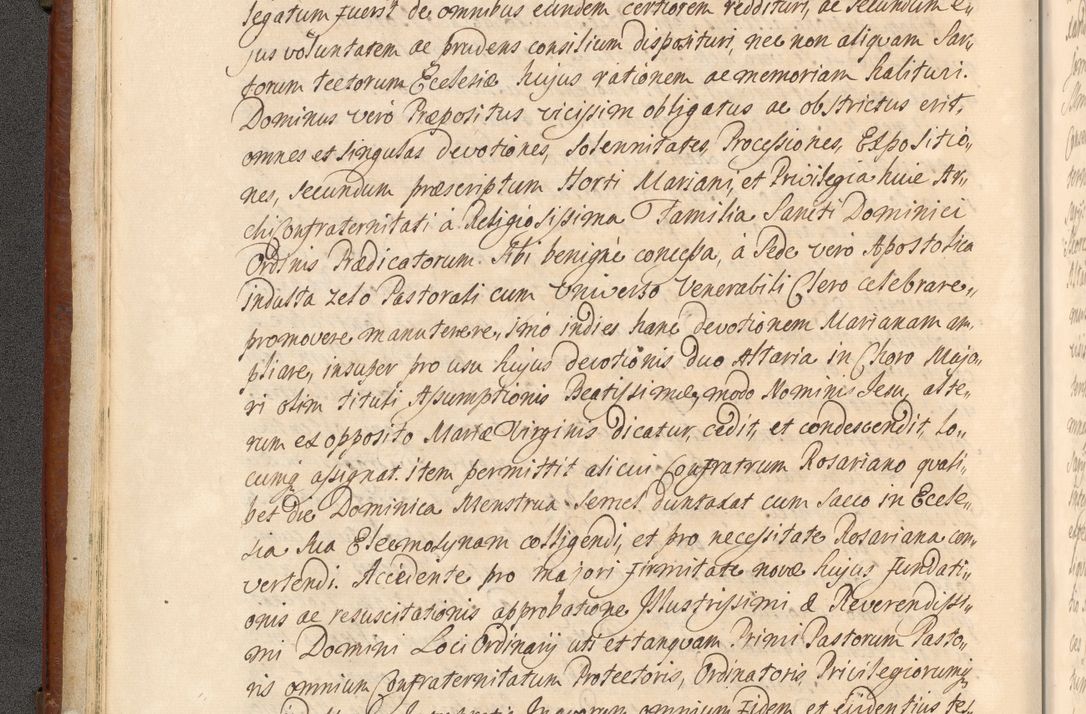 legatum fuerit de omnibus eundem certiorem reddituri, ac secundum e„
jus voluntatem ac prudens consilium disposituri, nec non aliquam Sar„
torum tectorum Ecclesiæ hujus rationem ac memoriam halituri.
Dominus verò Præpositus vicissim obligatus ac obstrictus erit,
omnes et singulas devotiones, Solennitates, Processiones, Expositio„
nes, secundum præscriptum Horti Mariani, et Privilegia huic Ar„
chiConfraternitati á Religiosissima Familia Sancti Dominici
Ordinis Prædicatorum Sibi benignè concessa, à Sede verò Apostolica
indulta zelo Pastorali cum Universo Venerabili Clero celebrare„
promovere manutenere„ imò indies hanc devotionem Marianam am„
pliare, insuper pro usu hujus devotionis duo Altaria in Choro Majo„
ri olim tituli Assumptionis Beatissimæ, modo Nominis Jesu, alte„
rum ex opposito Mariæ Virginis dicatur, cedit, et condescendit, lo„
cumq assignat. item permittit alicui Confratrum Rosariano quali„
bet die Dominica Menstrua semel duntaxat cum Sacco in Eccle„
sia sua Eleemosynam colligendi, et pro necessitate Rosariana con„
vertendi. Accedente pro majori firmitate novæ hujus Fundati„
onis ac resuscitationis approbatione Illustrissimi & Reverendissi„
mi Domini Loci Ordinarij uti et tanquam Primi Pastorum Pasto„
ris omnium Confraternitatum Protectoris, Ordinatoris, Privilegiorumq
In quorum omnium Fidem et evidentius tes„